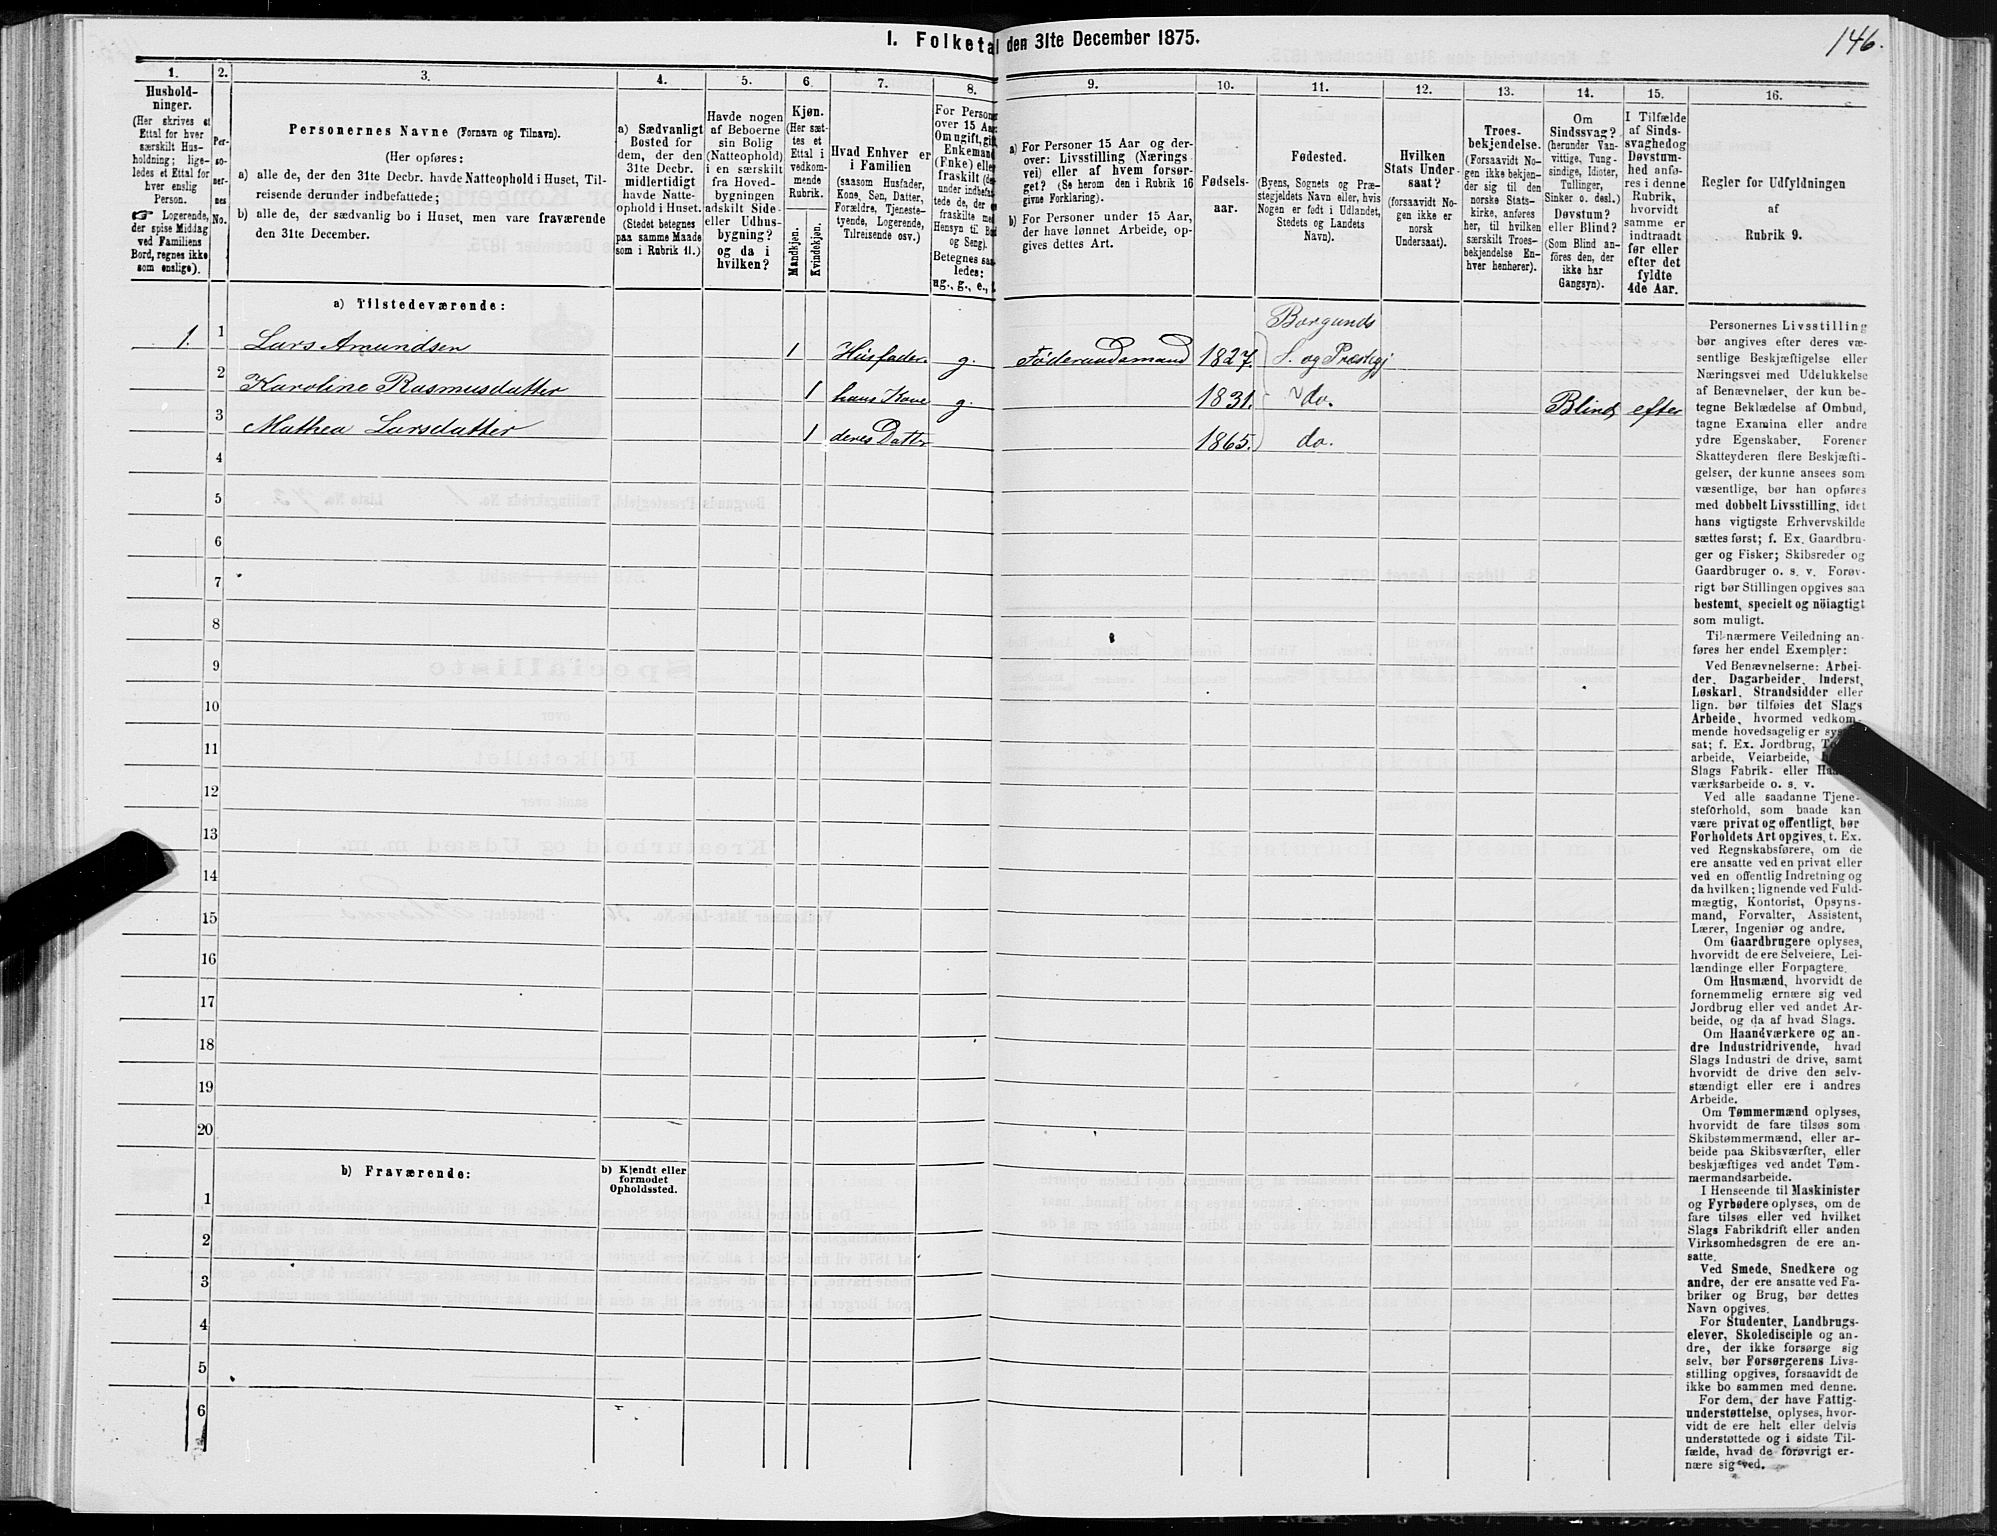 146.
I. Folketal den 31te December 1875.
1.
2.
3.
4.
5.
6.
7.
8.
9.
10.
11.
12.
13.
14.
15.
16.
Hushold-
ninger.
(Her skrives et
Ettal for hver
særskilt Hus-
holdning; lige-
ledes et Ettal for
hver enslig
Person.
☞ Logerende,
der spise Middag
ved Familiens
Bord, regnes ikke
som enslige).
Per-
so-
ner-
nes
No.
Personernes Navne (Fornavn og Tilnavn).
(Her opføres:
a) alle de, der den 31te Decbr. havde Natteophold i Huset, Til-
reisende derunder indbefattede;
b) alle de, der sædvanlig bo i Huset, men vare fraværende
den 31te December.
a) Sædvanligt
Bosted for
dem, der den
31te Decbr.
midlertidigt
havde Natte-
ophold i Huset.
(Stedet betegnes
paa samme Maade
som i Rubrik 11.)
Havde nogen
af Beboerne
sin Bolig
(Natteophold)
i en særskilt
fra Hoved-
bygningen
adskilt Side-
eller Udhus-
bygning?
og da i
hvilken?
Kjøn.
(Her sæt-
tes et
Ettal i
vedkom-
mende
Rubrik.
Mandkjøn.
Kvindekjøn.
Hvad Enhver er
i Familien
(saasom Husfader,
Kone, Søn, Datter,
Forældre, Tjeneste-
tyende, Logerende,
Tilreisende osv.).
For Personer
over 15 Aar:
Om ugift, gift,
Enkemand
(Enke) eller
fraskilt (der-
under indbefat-
tede de, der ere
fraskilte med
Hensyn til Bord
og Seng).
Betegnes saa-
ledes:
ug., g., e., f.
a) For Personer 15 Aar og der-
over: Livsstilling (Nærings
vei) eller af hvem forsør-
get? (Se herom den i Rubrik 16
givne Forklaring).
b) For Personer under 15 Aar,
der have lønnet Arbeide, op-
gives dettes Art.
Fødsels-
aar.
Fødested.
(Byens, Sognets og Præ-
stegjeldets Navn eller, hvis
Nogen er født i Udlandet,
Stedets og Landets
Navn).
Hvilken
Stats Under-
saat?
(forsaavidt No-
gen ikke er
norsk
Undersaat).
Troes-
bekjendelse.
(Forsaavidt No-
gen ikke bekjen-
der sig til den
norske Stats-
kirke, anføres
her, til hvilken
særskilt Troes-
bekjendelse En-
hver henhører).
Om
Sindssvag?
(herunder Van-
vittige, Tung-
sindige, Idioter,
Tullinger,
Sinker o. desl.)
Døvstum?
eller Blind?
(Som Blind an-
føres den, der
ikke har
Gangsyn).
I Tilfælde
af Sinds-
svaghed og
Døvstum-
hed anfø-
res i denne
Rubrik,
hvorvidt
samme er
indtraadt
før eller
efter det
fyldte
4de Aar.
Regler for Udfyldningen
af
Rubrik 9.
a) Tilstedeværende:
1. 1 Lars Amundsen 1 Husfader g. Føderaadsmand 1827. Borgunds
S. og Præstegj
2 Karoline Rasmusdatter 1 hans Kone g. 1831. do. Blind efter
3 Mathea Larsdatter 1 deres Datter 1865. do.
4
5
6
7
8
9
10
11
12
13
14
15
16
17
18
19
20
b) Fraværende:
b) Kjendt eller
formodet
Opholdssted.
1
2
3
4
5
6
Personernes Livsstilling
bør angives efter deres væ-
sentlige Beskjæftigelse eller
Næringsvei med Udelukkelse
af Benævnelser, der kun be-
tegne Beklædelse af Ombud,
tagne Examina eller andre
ydre Egenskaber. Forener
Skatteyderen flere Beskjæfti-
gelser, der kunne ansees som
væsentlige, bør han opføres
med dobbelt Livsstilling, idet
hans vigtigste Erhvervskilde
sættes først; f. Ex. Gaardbru-
ger og Fisker; Skibsreder og
Gaardbruger o. s. v. Forøv-
rigt bør Stillingen opgives saa
bestemt, specielt og nöiagtigt
som muligt.
Til nærmere Veiledning an-
føres her endel Exempler:
Ved Benævnelserne: Arbei-
der, Dagarbeider, Inderst,
Løskarl, Strandsidder eller
lign. bør tilføies det Slags
Arbeide, hvormed vedkom-
mende hovedsagelig er syssel-
sat; f. Ex. Jordbrug,
arbeide, Veiarbeide,
Slags Fabrik- eller Haand-
værksarbeide o. s. v.
Ved alle saadanne Tjene-
steforhold, som baade kan
være privat og offentligt, bør
Forholdets Art opgives, t. Ex.
ved Regnskabsførere, om de
ere ansatte ved en privat eller
ved en offentlig Indretning og
da hvilken; lignende ved Fuld-
mægtig, Kontorist, Opsyns-
mand, Forvalter, Assistent,
Lærer, Ingeniør og andre.
Om Gaardbrugere oplyses,
hvorvidt de ere Selveiere, Lei-
lændinge eller Forpagtere.
Om Husmænd, hvorvidt de
fornemmelig ernære sig ved
Jordbrug eller ved andet Ar-
beide, og da af hvad Slags.
Om Haandværkere og an-
dre Industridrivende, hvad
Slags Industri de drive, samt
hvorvidt de drive den selv-
stændigt eller ere i andres
Arbeide.
Om Tømmermænd oplyses,
hvorvidt de fare tilsøs som
Skibstømmermænd, eller ar-
beide paa Skibsværfter, eller
beskjæftiges ved andet Tøm-
mermandsarbeide.
I Henseende til Maskinister
og Fyrbødere oplyses, om de
fare tilsøs eller ved hvilket
Slags Fabrikdrift eller anden
Virksomhedsgren de ere an-
satte.
Ved Smede, Snedkere og
andre, der ere ansatte ved Fa-
briker og Brug, bør dettes
Navn opgives.
For Studenter, Landbrugs-
elever, Skoledisciple og an-
dre, der ikke forsørge sig
selv, bør Forsørgerens Livs-
stilling opgives, forsaavidt de
ikke bo sammen med denne.
For dem, der have Fattig-
understøttelse, oplyses, hvor-
vidt de ere helt eller delvis
understøttede og i sidste Til-
fælde, hvad de forøvrigt er-
nære sig ved.